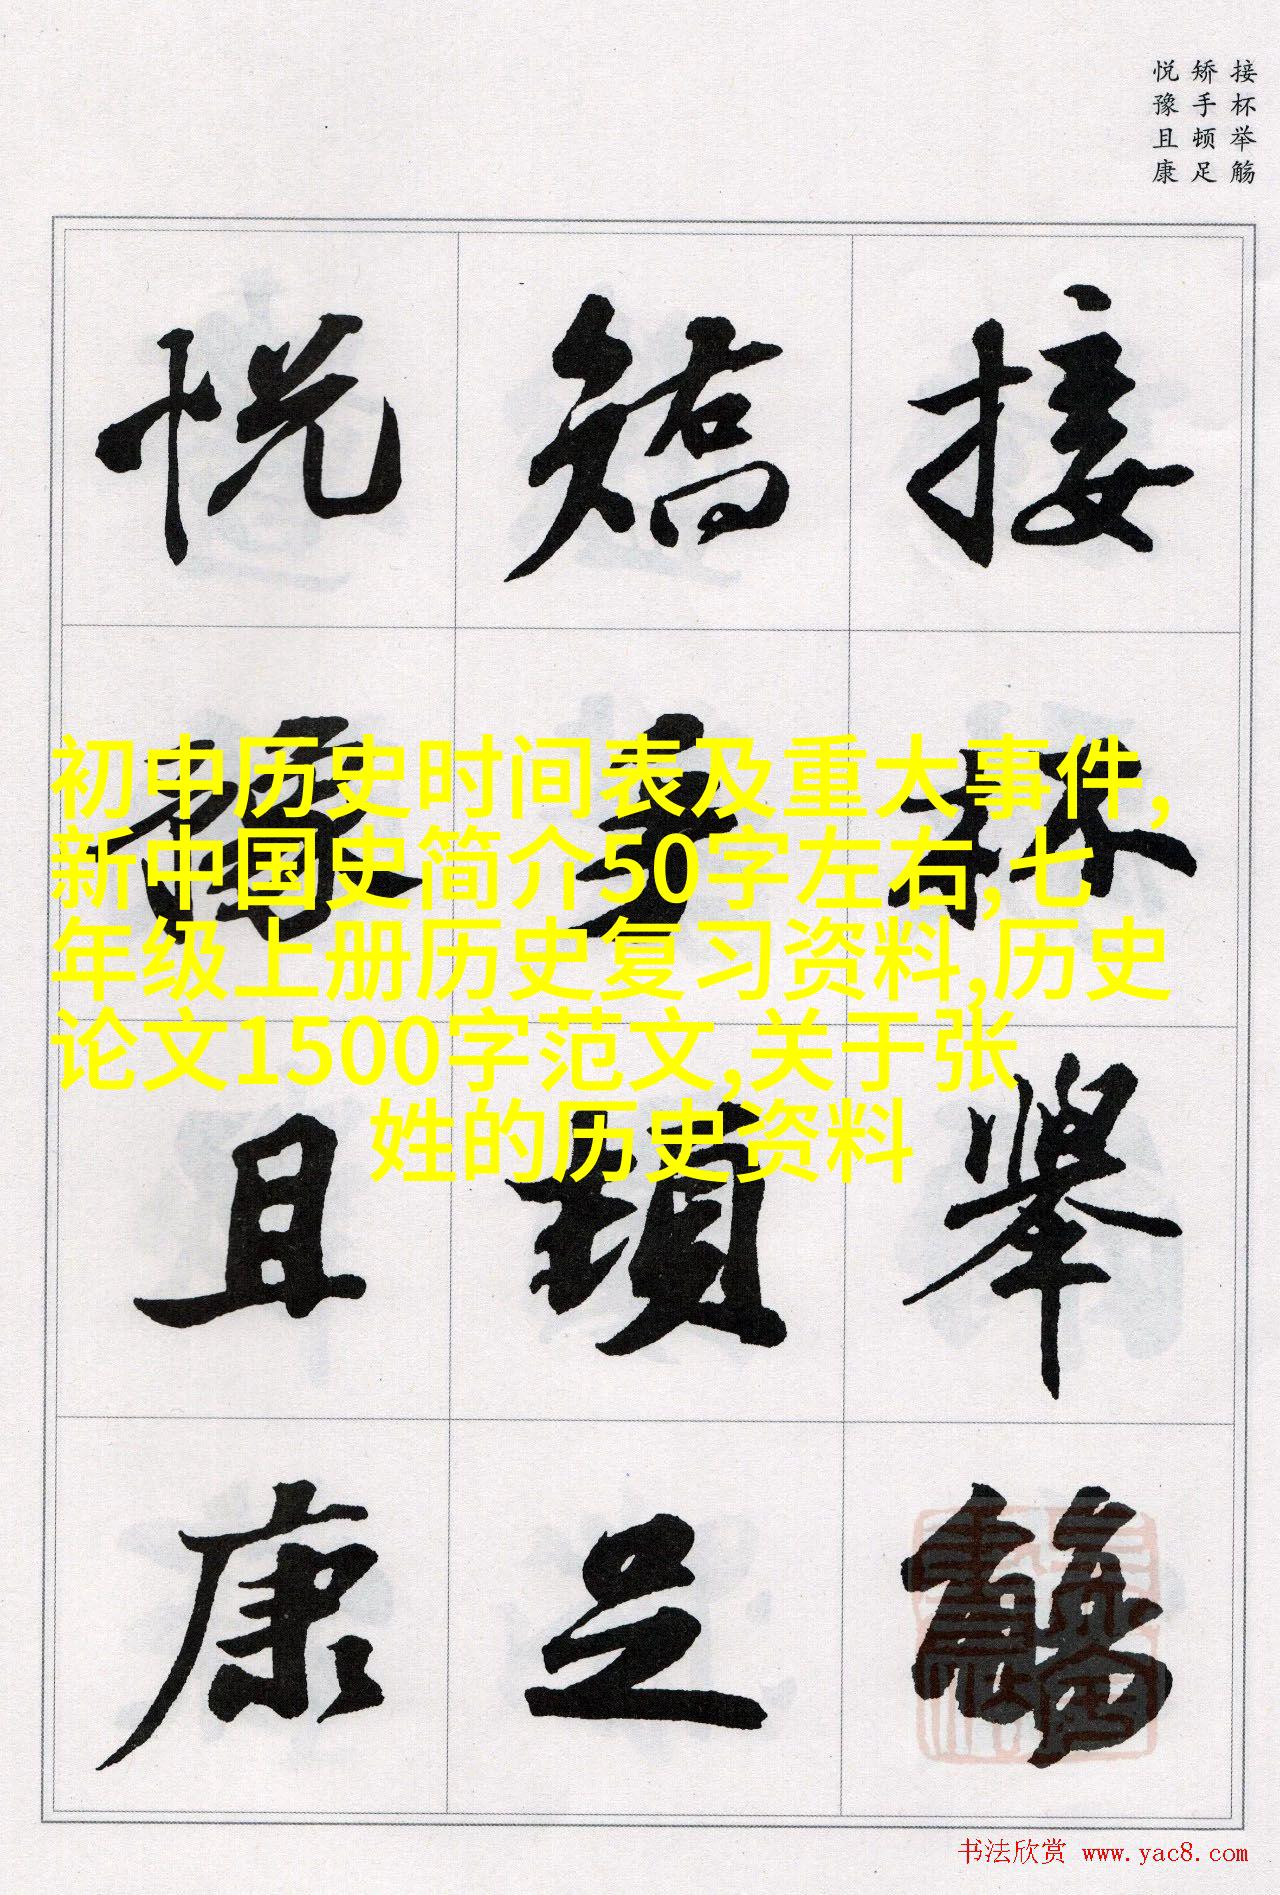 接杯举觞
矫手顿足
悦豫且康
接杯舉觴
矯手頓足
悦豫且康
初中历史时间表及重大事件,
新中国史简介50字左右,七
年级上册历史复习资料,历史
论文1500字范文,关于张
姓的历史资料
书法欣赏 www.yac8.com